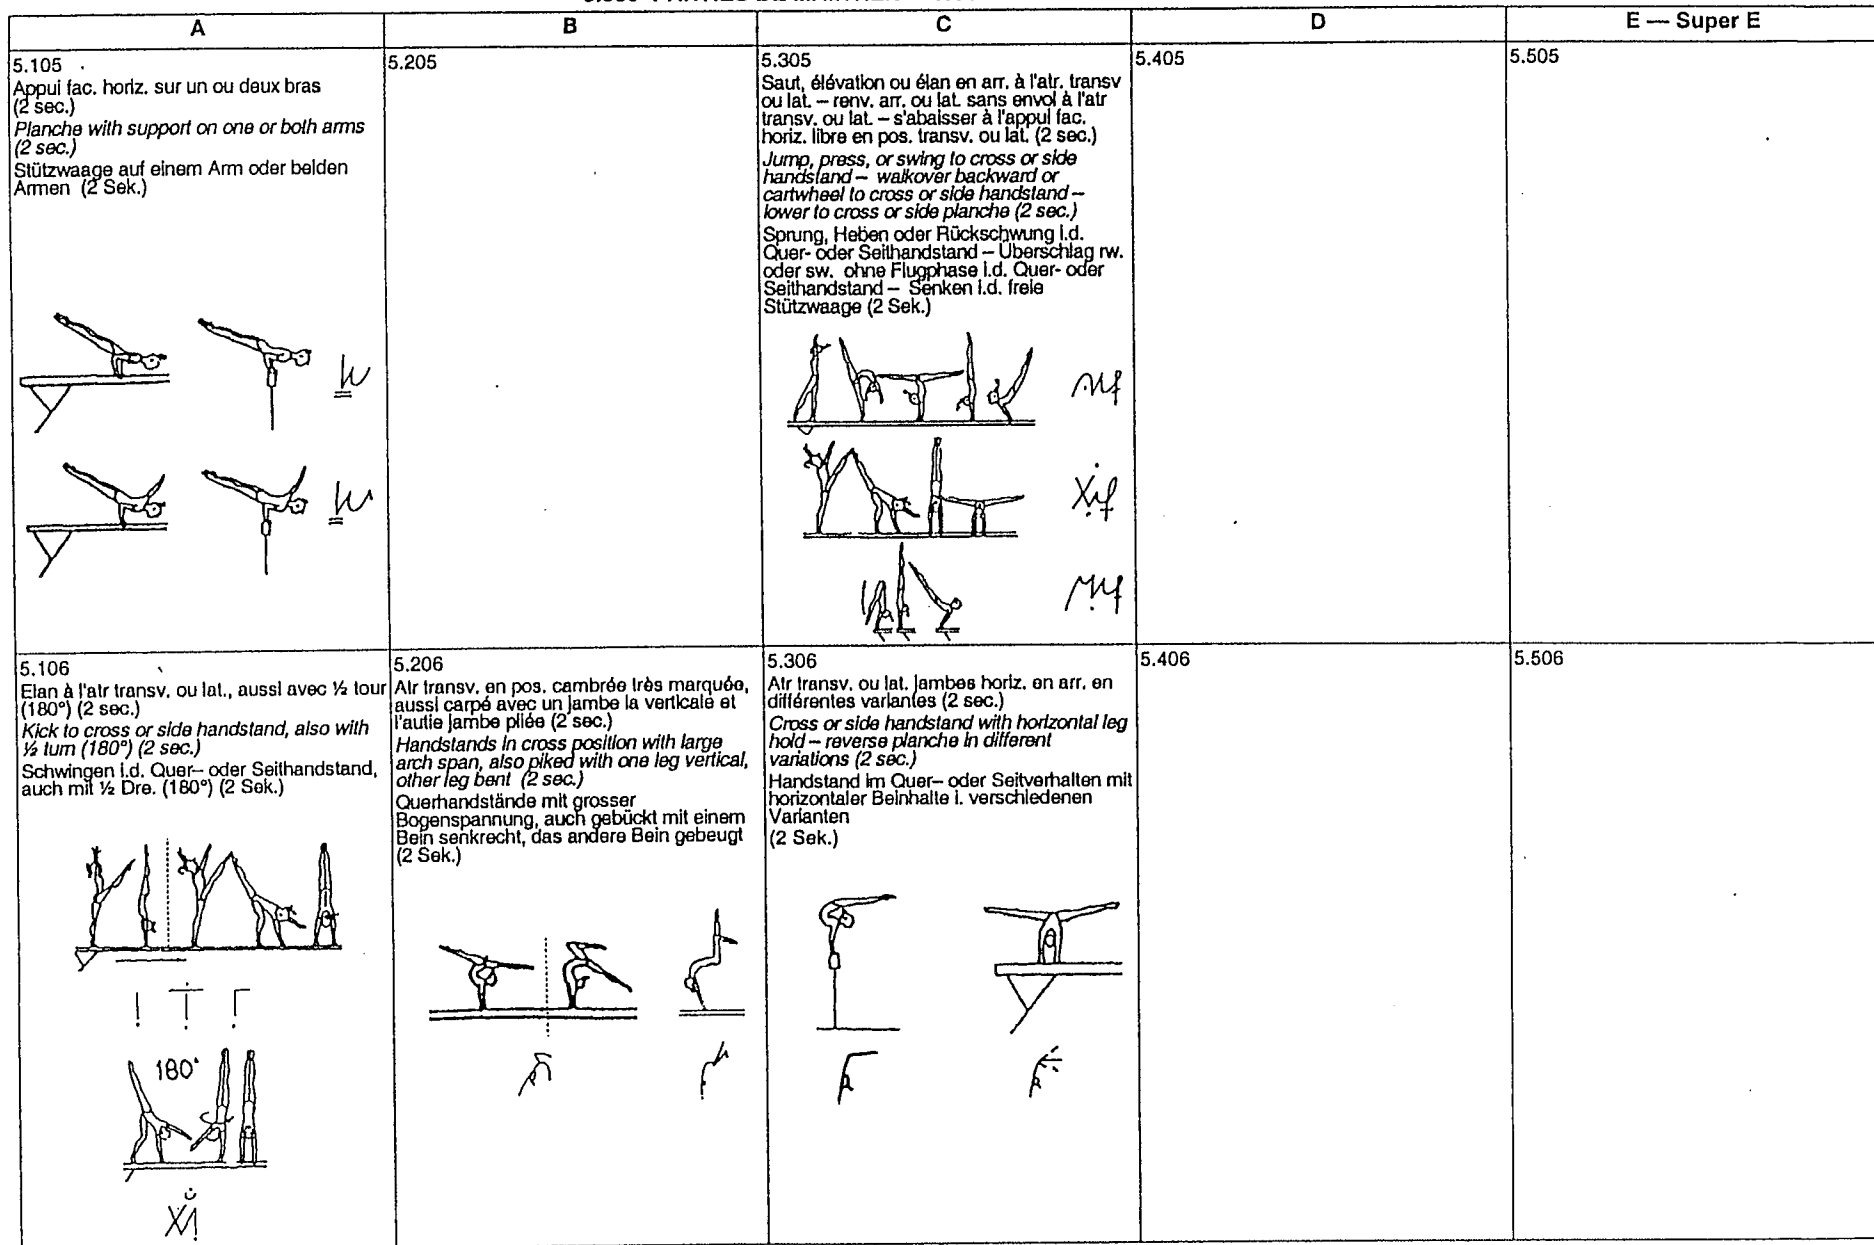 A
B
C
D
E — Super E
5.105
Appui fac. horiz. sur un ou deux bras
(2 sec.)
Planche with support on one or both arms
(2 sec.)
Stützwaage auf einem Arm oder beiden
Armen (2 Sek.)
5.205
5.305
Saut, élévation ou élan en arr. à l'atr. transv
ou lat. – renv. arr. ou lat. sans envol à l'atr
transv. ou lat. – s'abaisser à l'appui fac.
horiz. libre en pos. transv. ou lat. (2 sec.)
Jump, press, or swing to cross or side
handstand – walkover backward or
cartwheel to cross or side handstand –
lower to cross or side planche (2 sec.)
Sprung, Heben oder Rückschwung i.d.
Quer- oder Seithandstand – Überschlag rw.
oder sw. ohne Flugphase i.d. Quer- oder
Seithandstand – Senken i.d. freie
Stützwaage (2 Sek.)
5.405
5.505
5.106
Elan à l'atr transv. ou lat., aussi avec ½ tour
(180°) (2 sec.)
Kick to cross or side handstand, also with
½ turn (180°) (2 sec.)
Schwingen i.d. Quer– oder Seithandstand,
auch mit ½ Dre. (180°) (2 Sek.)
180°
5.206
Atr transv. en pos. cambrée très marquée,
aussi carpé avec un jambe la verticale et
l'autie jambe pliée (2 sec.)
Handstands in cross position with large
arch span, also piked with one leg vertical,
other leg bent (2 sec.)
Querhandstände mit grosser
Bogenspannung, auch gebückt mit einem
Bein senkrecht, das andere Bein gebeugt
(2 Sek.)
5.306
Atr transv. ou lat. jambes horiz. en arr. en
différentes variantes (2 sec.)
Cross or side handstand with horizontal leg
hold – reverse planche in different
variations (2 sec.)
Handstand im Quer– oder Seitverhalten mit
horizontaler Beinhalte i. verschiedenen
Varianten
(2 Sek.)
5.406
5.506